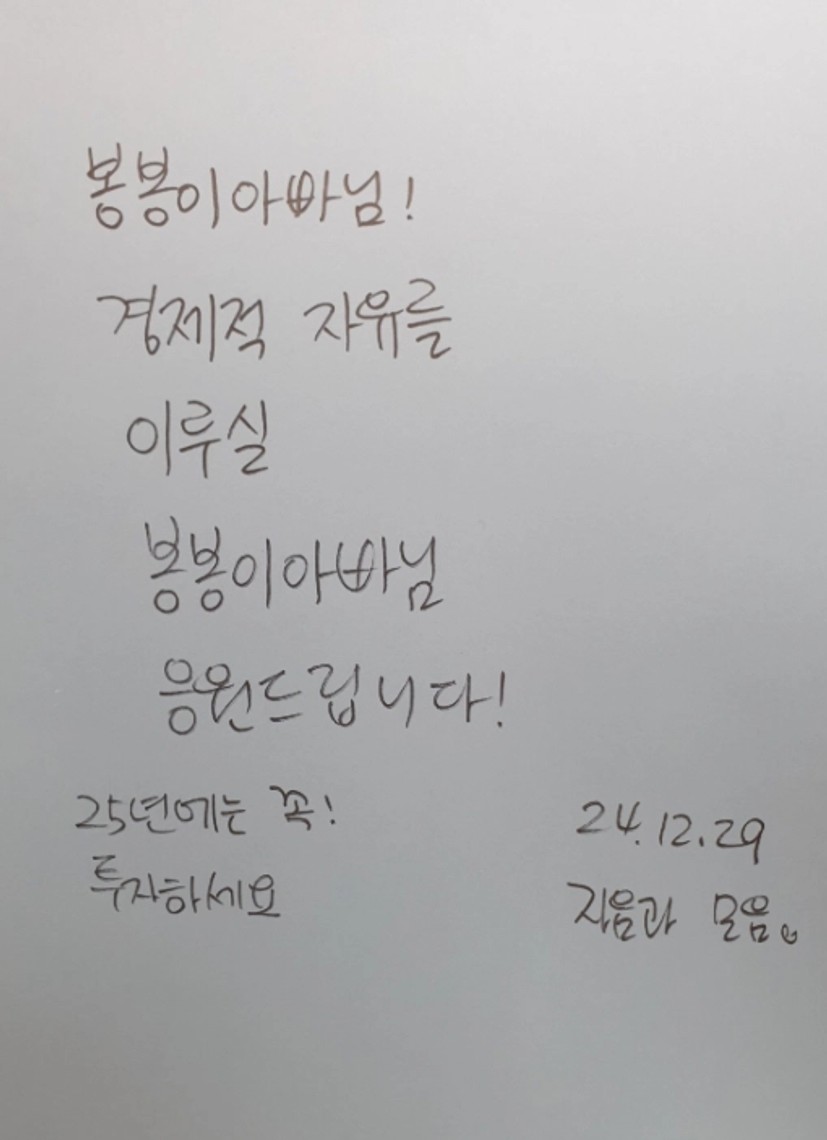 봉봉이아빠님!
경제적 자유를
이루실
봉봉이아빠님
응원드립니다!
25년에는 꼭!
투자하세요
24.12.29
지음과 모음。